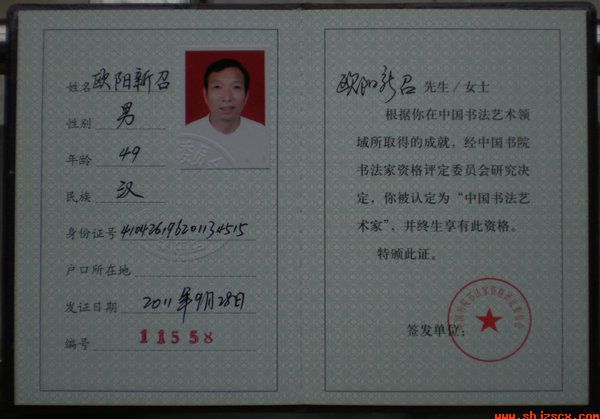 姓名 欧阳新召
性别 男
年龄 49
民族 汉
身份证号 410426196201134515
户口所在地
发证日期 2011年9月28日
编号 11558
欧阳新召 先生/女士
根据你在中国书法艺术领
域所取得的成就，经中国书院
书法家资格评定委员会研究决
定，你被认定为“中国书法艺
术家”，并终生享有此资格。
特颁此证。
签发单位：
www.shjzscx.com